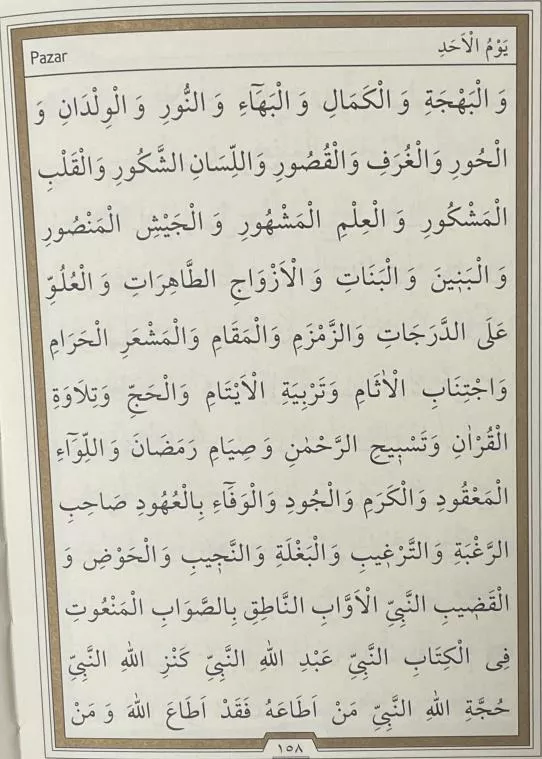 Pazar يَوْمُ الْاَحَدِ
وَ الْبَهْجَةِ وَ الْكَمَالِ وَ الْبَهَٓاءِ وَ النُّورِ وَ الْوِلْدَانِ وَ
الْحُورِ وَ الْغُرَفِ وَالْقُصُورِ وَاللِّسَانِ الشَّكُورِ وَالْقَلْبِ
الْمَشْكُورِ وَ الْعِلْمِ الْمَشْهُورِ وَ الْجَيْشِ الْمَنْصُورِ
وَ الْبَنِينَ وَ الْبَنَاتِ وَ الْاَزْوَاجِ الطَّاهِرَاتِ وَ الْعُلُوِّ
عَلَى الدَّرَجَاتِ وَالزَّمْزَمِ وَالْمَقَامِ وَالْمَشْعَرِ الْحَرَامِ
وَاجْتِنَابِ الْاٰثَامِ وَتَرْبِيَةِ الْاَيْتَامِ وَالْحَجِّ وَتِلَاوَةِ
الْقُرْاٰنِ وَتَسْبِيحِ الرَّحْمٰنِ وَ صِيَامِ رَمَضَانَ وَ اللِّوَٓاءِ
الْمَعْقُودِ وَ الْكَرَمِ وَالْجُودِ وَالْوَفَٓاءِ بِالْعُهُودِ صَاحِبِ
الرَّغْبَةِ وَ التَّرْغِيبِ وَ الْبَغْلَةِ وَالنَّجِيبِ وَ الْحَوْضِ وَ
الْقَضِيبِ النَّبِيِّ الْاَوَّابِ النَّاطِقِ بِالصَّوَابِ الْمَنْعُوتِ
فِى الْكِتَابِ النَّبِيِّ عَبْدِ اللهِ النَّبِيِّ كَنْزِ اللهِ النَّبِيِّ
حُجَّةِ اللهِ النَّبِيِّ مَنْ اَطَاعَهُ فَقَدْ اَطَاعَ اللهَ وَ مَنْ
١٥٨